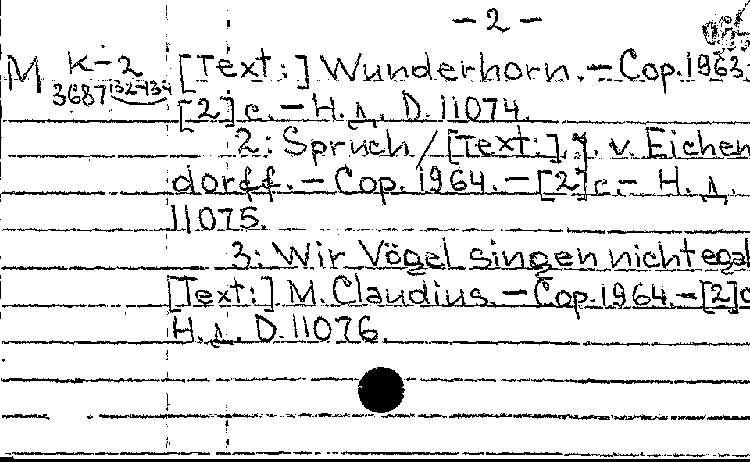 - 2 -
М К-2 [Text:] Wunderhorn. - Cop. 1963. -
3687 132-134 [2] с. - Н. д. D. 11074.
2: Spruch / [Text:] J. v. Eichen
dorff. - Cop. 1964. - [2] с. - Н. д.
11075.
3: Wir Vögel singen nicht egal
[Text:] M. Claudius. - Cop. 1964. - [2] с
Н. д. D. 11076.